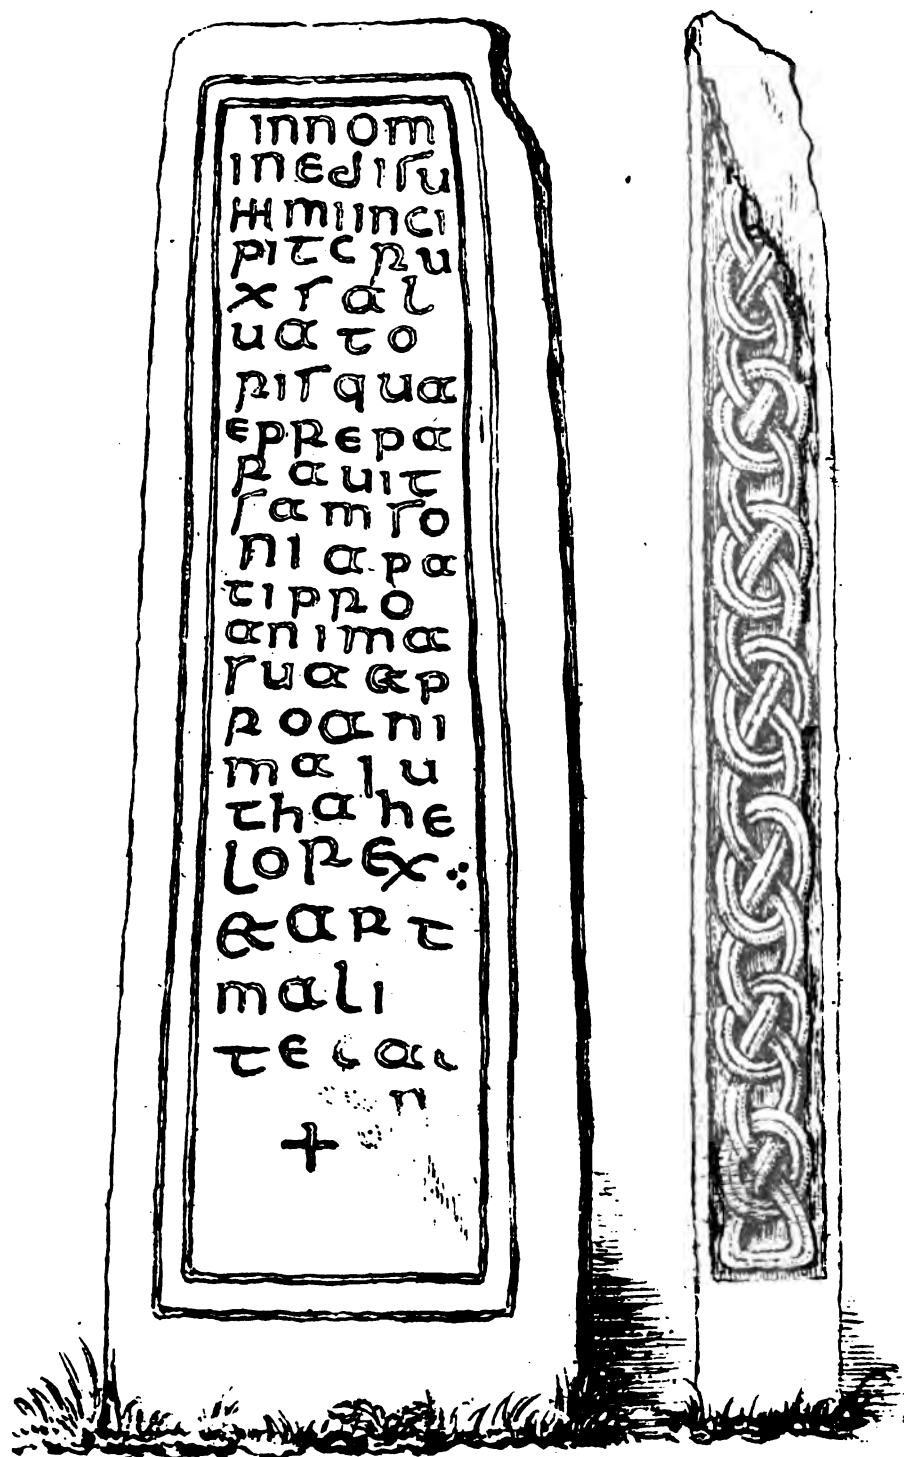 INNOM
INEDISU
MMIINCI
PITCRU
XSAL
UATO
RISQUA
EPREPA
RAUIT
SAMSO
NIAPA
TIPRO
ANIMA
SUA&P
ROANI
MAIU
THAHE
LOREX∴
&ART
MALI
TECAI
N
+